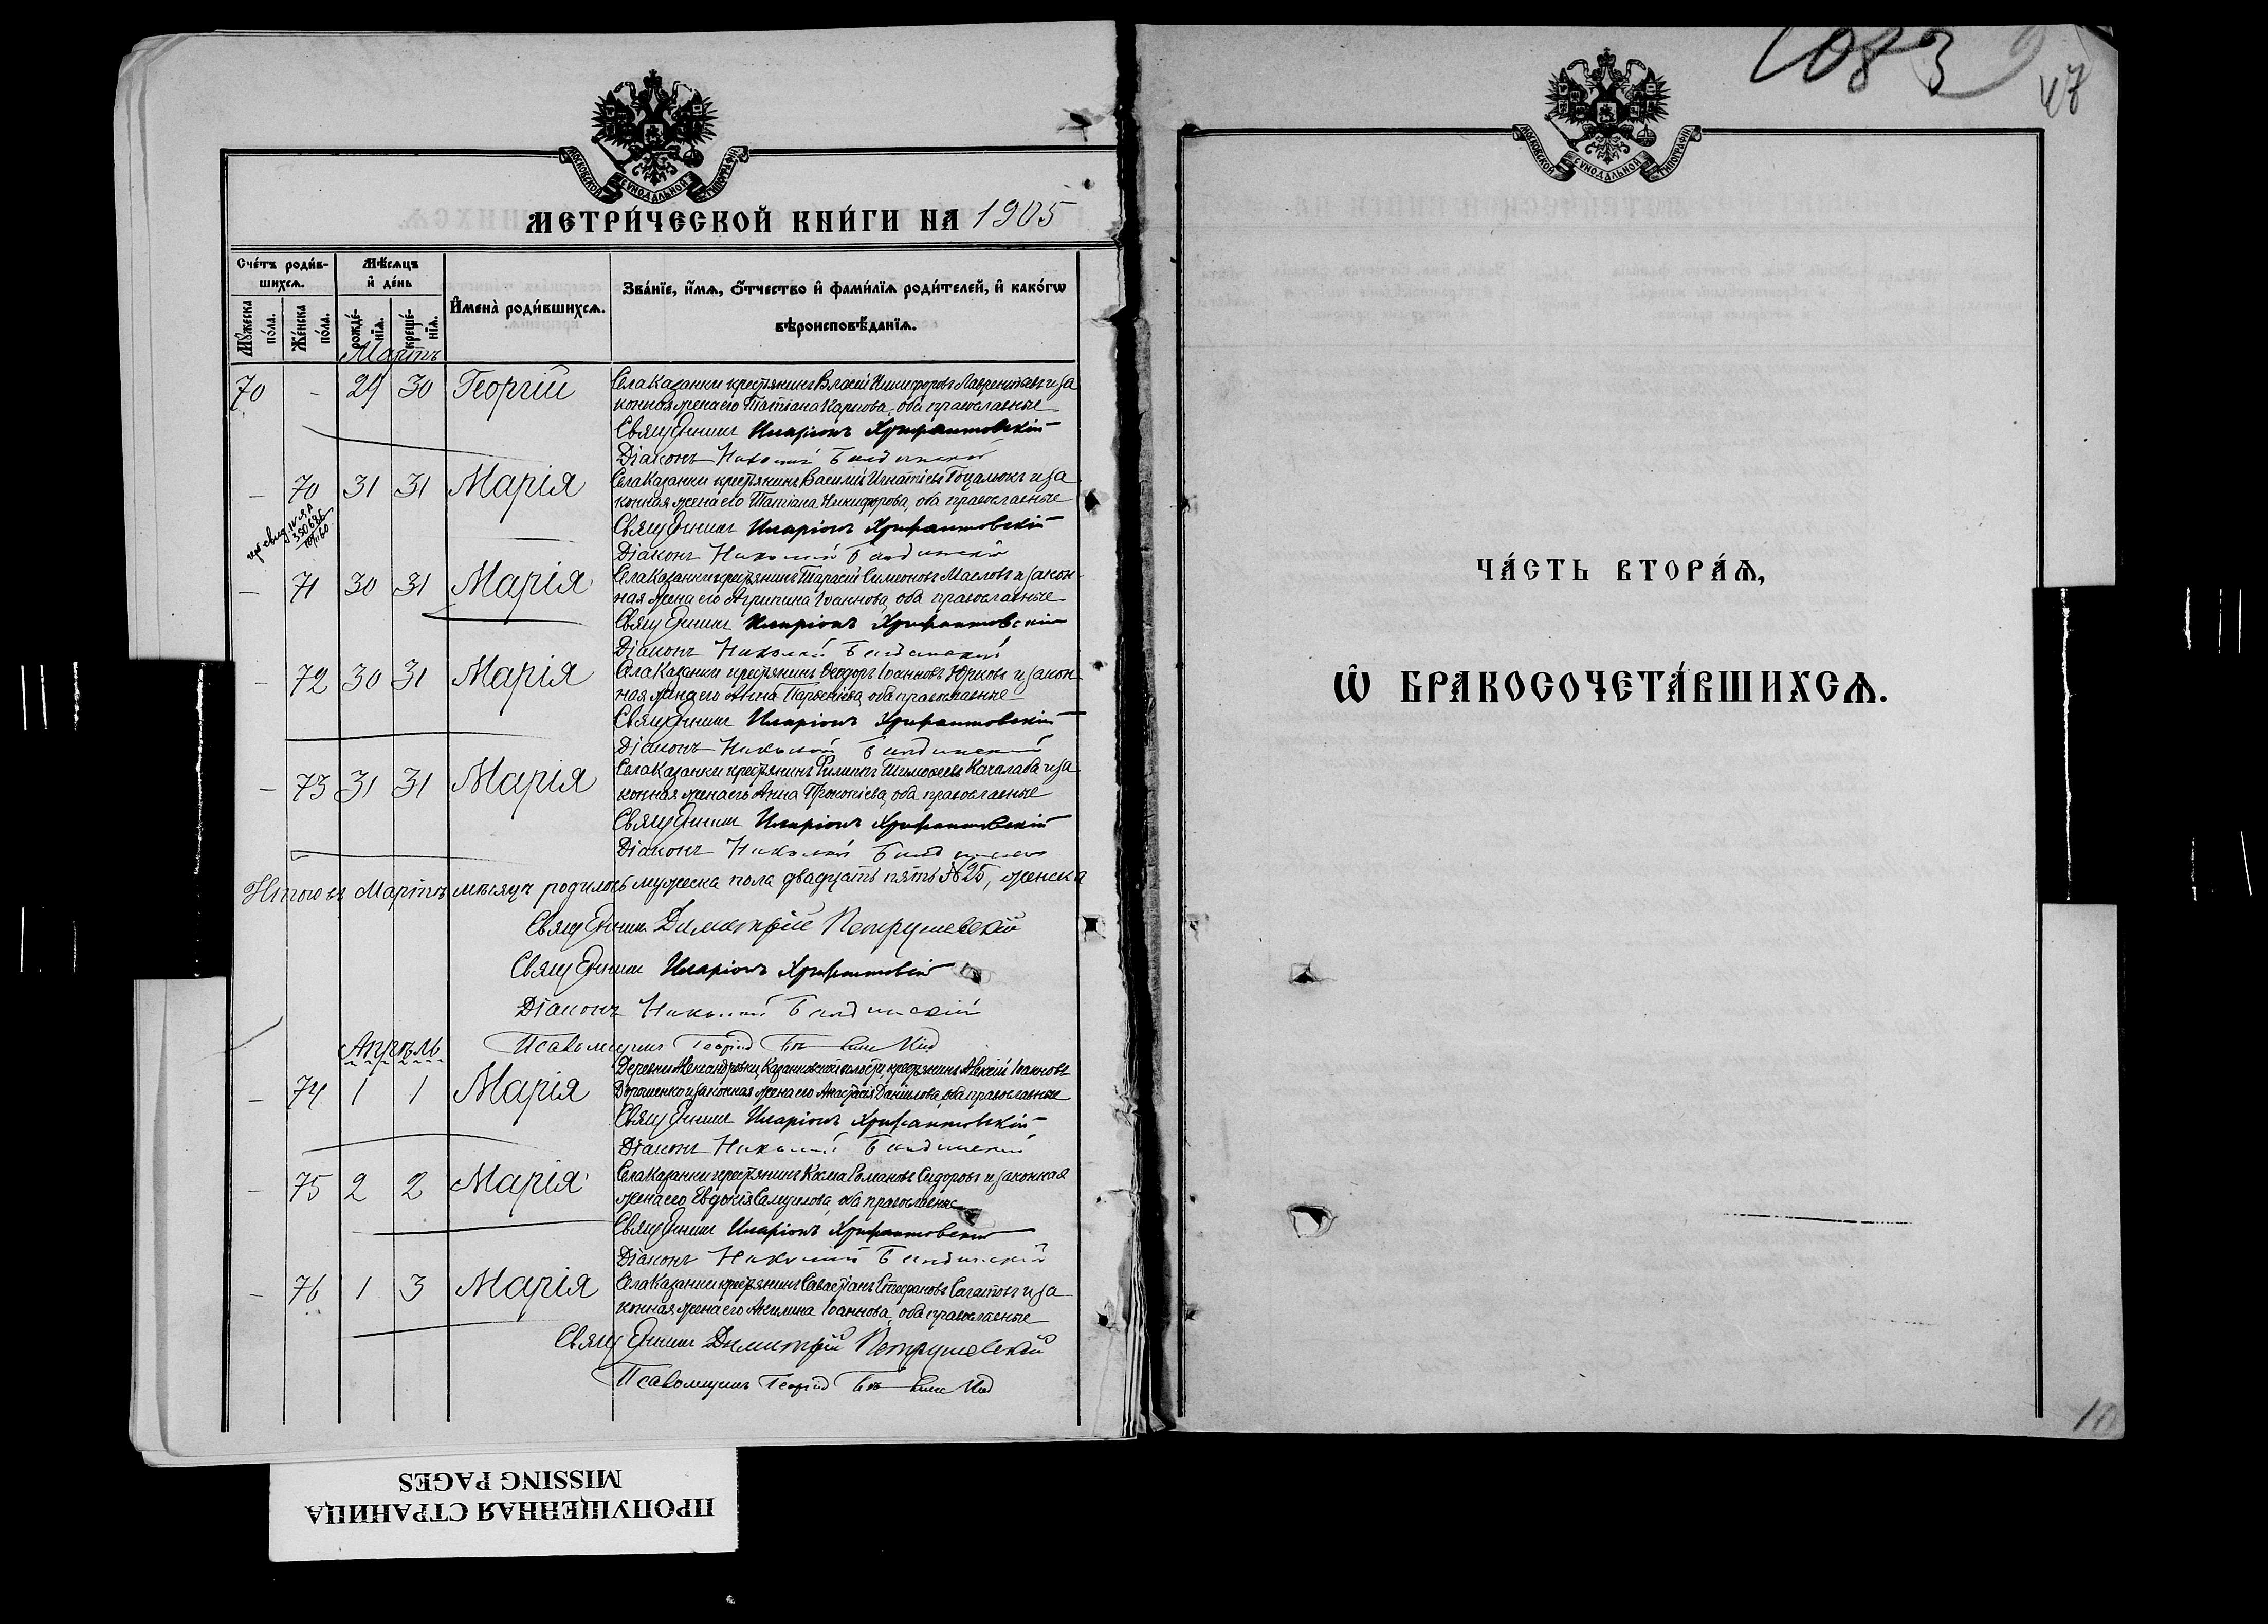 МОСКОВСКОЙ СУНОДАЛЬНОЙ ТИПОГРАФІИ
МЕТРИ́ЧЕСКОЙ КНИ́ГИ НА 1905
Сче́тъ роди́в-
шихсѧ.
Мѣ́сѧцъ
и҆ де́нь
И҆мена̀ роди́вшихсѧ.
Зва́нїе, и҆́мѧ, ѻ҆́тчество и҆ фами́лїѧ роди́телей, и҆ како́гѡ
вѣроисповѣ́данїѧ.
Мꙋ́жеска
по́ла.
Же́нска
по́ла.
рожде́-
нїѧ.
креще́-
нїѧ.
Мартъ
70 - 29 30 Георгій Села Казанки крестьянинъ Власій Никифоровъ Лаврентьевъ и за
конная жена его Татіана Карпова, оба православные
Священникъ Иларіонъ Хрисантовскій
Діаконъ Николай
- 70 31 31 Марія Села Казанки крестьянинъ Василій Игнатіевъ Гоцалюкъ и за
конная жена его Татіана Никифорова, оба православные
Священникъ Иларіонъ Хрисантовскій
Діаконъ Николай
- 71 30 31 Марія Села Казанки крестьянинъ Тарасій Симеоновъ Масловъ и закон-
ная жена его Агрипина Іоаннова, оба православные
Священникъ Иларіонъ Хрисантовскій
Діаконъ Николай
- 72 30 31 Марія Села Казанки крестьянинъ Ѳеодоръ Іоанновъ Юрковъ и закон-
ная жена его Анна Парѳеніева, оба православные
Священникъ Иларіонъ Хрисантовскій
Діаконъ Николай
- 73 31 31 Марія Села Казанки крестьянинъ Филиппъ Тимоѳеевъ Качалаба и за
конная жена его Анна Прокопіева, оба православные
Священникъ Иларіонъ Хрисантовскій
Діаконъ Николай
Итого въ Мартѣ мѣсяцѣ родилось мужеска пола двадцать пять №25, женска
Священникъ Димитрій Петрушевскій
Священникъ Иларіонъ Хрисантовскій
Діаконъ Николай
Псаломщикъ Георгій
Апрѣль
- 74 1 1 Марія Деревни Александровки, Казанковской волости, крестьянинъ Алексій Іоанновъ
Дорошенко и законная жена его Анастасія Даніилова, оба православные
Священникъ Иларіонъ Хрисантовскій
Діаконъ Николай
- 75 2 2 Марія Села Казанки крестьянинъ Косма Романовъ Сидоровъ и законная
жена его Евдокія Самуилова, оба православные
Священникъ Иларіонъ Хрисантовскій
Діаконъ Николай
- 76 1 3 Марія Села Казанки крестьянинъ Савастіанъ Стефановъ и за
конная жена его Акилина Іоаннова, оба православные
Священникъ Димитрій Петрушевскій
Псаломщикъ Георгій
ПРОПУЩЕННАЯ СТРАНИЦА
MISSING PAGES
1083
47
МОСКОВСКОЙ СУНОДАЛЬНОЙ ТИПОГРАФІИ
ЧА́СТЬ ВТОРА́Ѧ,
Ѡ҆ БРАКОСОЧЕТА́ВШИХСѦ.
10